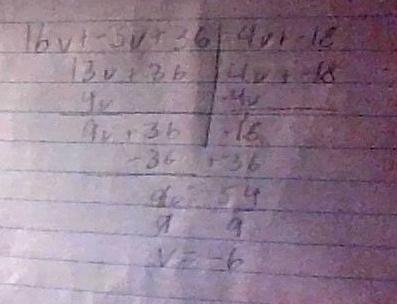 16v+-3v+36 | 4v+-18
13v+36 | 4v+-18
4v -4v
9v+36 | -18
-36 +-36
9v -54
9 9
v=-6